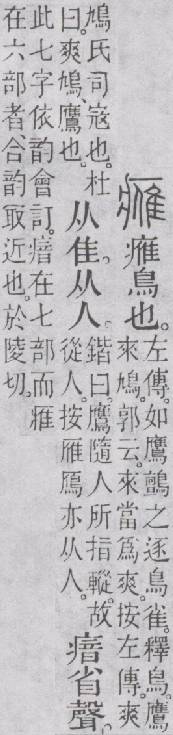 𤸰𤸰鳥也。
左傳。如鷹鸇之逐鳥雀。釋鳥。鷹
來鳩。郭云。來當爲爽。按左傳。爽
鳩氏司寇也。杜
曰。爽鳩鷹也。
从隹。从人。
鍇曰。鷹隨人所指䡮。故
從人。按雁鴈亦从人。
瘖省聲。
此七字依韵會訂。瘖在七部而𤸰
在六部者、合韵取近也。於陵切。